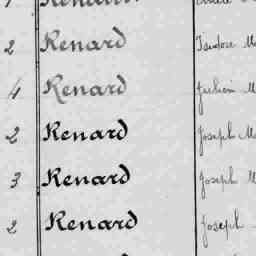 2 Renard Isidore M
4 Renard Julien M
2 Renard Joseph M
3 Renard Joseph M
2 Renard Joseph